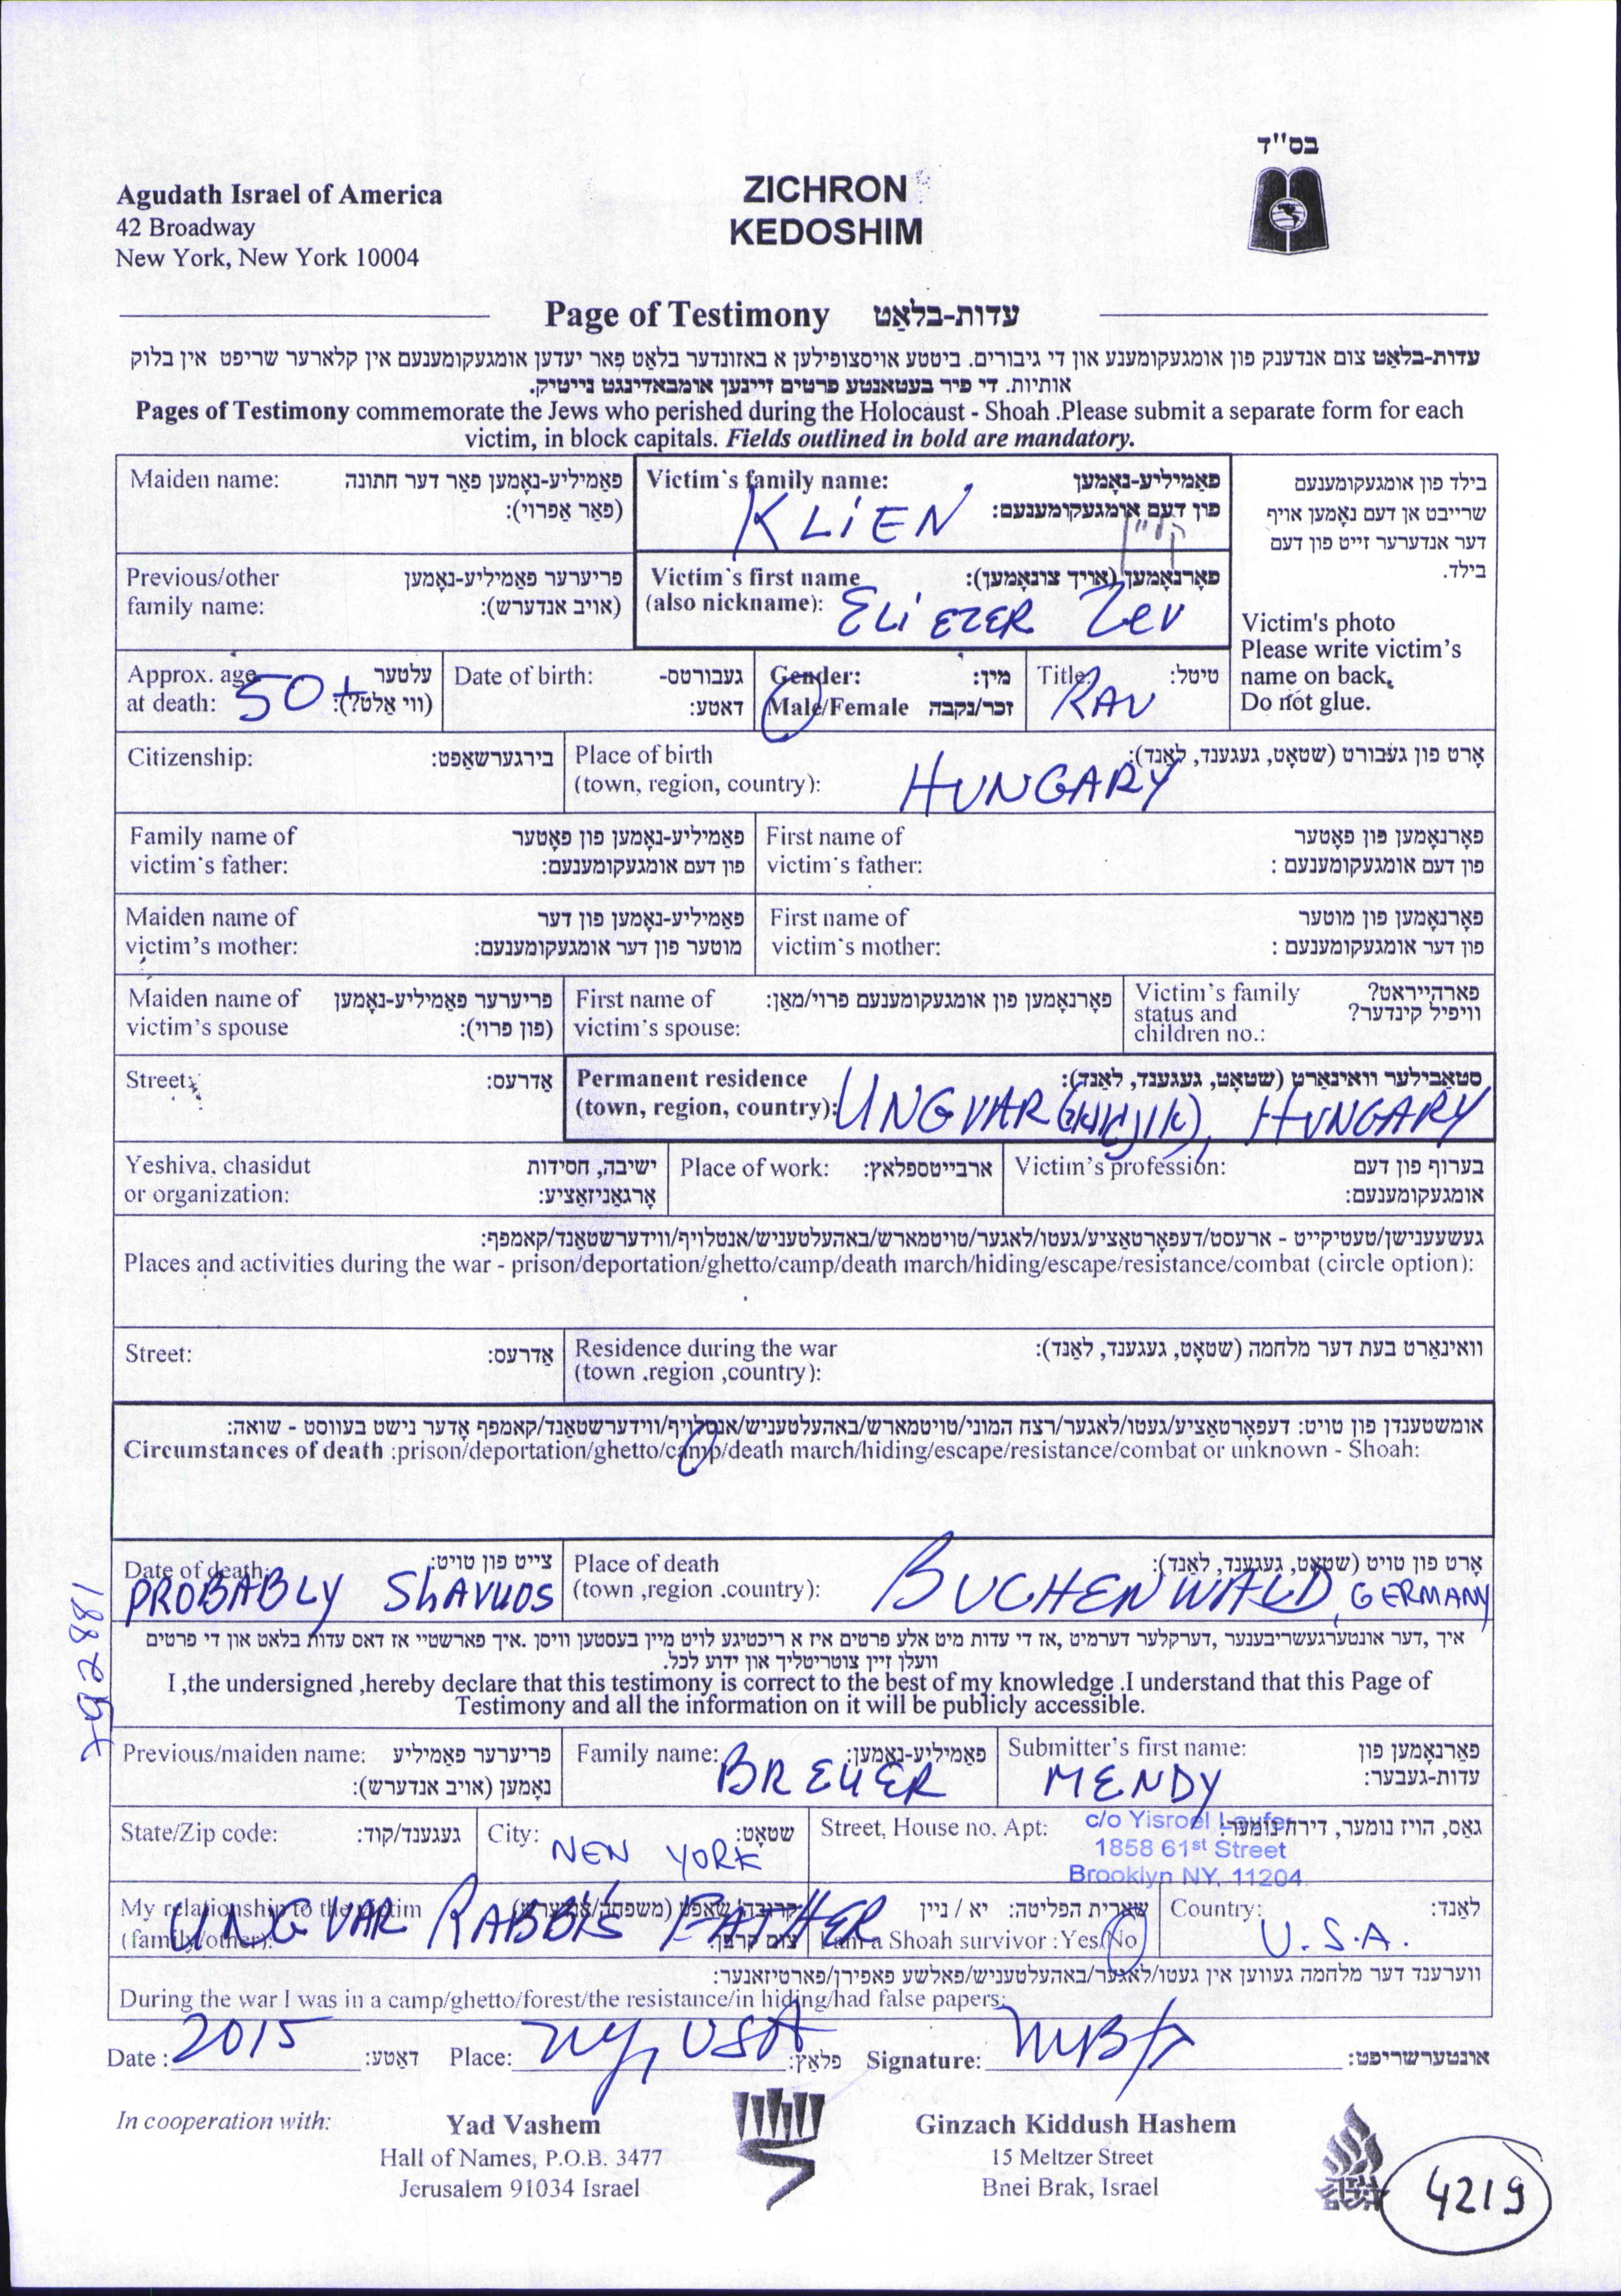 בס"ד
Agudath Israel of America
42 Broadway
New York, New York 10004
ZICHRON
KEDOSHIM
Page of Testimony עדות-בלאַט
עדות-בלאַט צום אנדענק פון אומגעקומענע און די גיבורים. ביטטע אויסצופילען א באזונדער בלאַט פאר יעדען אומגעקומענעם אין קלארער שריפט אין בלוק
אותיות. די פיר בעטאנטע פרטים זיינען אומבאדינגט נייטיק.
Pages of Testimony commemorate the Jews who perished during the Holocaust - Shoah .Please submit a separate form for each
victim, in block capitals. Fields outlined in bold are mandatory.
Maiden name: פאַמיליע-נאָמען פאַר דער חתונה
(פאַר אַפרוי):
Victim's family name: פאַמיליע-נאָמען
פון דעם אומגעקומענעם:
KLiEN קליין
בילד פון אומגעקומענעם
שרייבט אן דעם נאָמען אויף
דער אנדערער זייט פון דעם
בילד.
Victim's photo
Please write victim's
name on back.
Do not glue.
Previous/other פריערער פאַמיליע-נאָמען
family name: (אויב אנדערש):
Victim's first name פאָרנאָמען (אויך צונאָמען):
(also nickname): ELiEZER Zev
Approx. age עלטער
at death: 50+ (ווי אלט?):
Date of birth: געבורטס-
דאטע:
Gender: מין:
Male/Female זכר/נקבה
Title: טיטל:
RAV
Citizenship: בירגערשאַפט:
Place of birth אָרט פון געבורט (שטאָט, געגענד, לאַנד):
(town, region, country): HUNGARY
Family name of פאַמיליע-נאָמען פון פאָטער
victim's father: פון דעם אומגעקומענעם:
First name of פאָרנאָמען פון פאָטער
victim's father: פון דעם אומגעקומענעם :
Maiden name of פאַמיליע-נאָמען פון דער
victim's mother: מוטער פון דער אומגעקומענעם:
First name of פאָרנאָמען פון מוטער
victim's mother: פון דער אומגעקומענעם :
Maiden name of פריערער פאַמיליע-נאָמען
victim's spouse (פון פרוי):
First name of פאָרנאָמען פון אומגעקומענעם פרוי/מאַן:
victim's spouse:
Victim's family פארהייראט?
status and וויפיל קינדער?
children no.:
Street: אַדרעס:
Permanent residence סטאַבילער וואוינאַרט (שטאָט, געגענד, לאַנד):
(town, region, country): UNGVAR (אונגוואר), HUNGARY
Yeshiva, chasidut ישיבה, חסידות
or organization: אָרגאַניזאַציע:
Place of work: ארבייטספלאץ:
Victim's profession: בערוף פון דעם
אומגעקומענעם:
געשעענישן/טעטיקייט - ארעסט/דעפאָרטאַציע/געטו/לאגער/טויטמארש/באהעלטעניש/אנטלויף/ווידערשטאַנד/קאמפף:
Places and activities during the war - prison/deportation/ghetto/camp/death march/hiding/escape/resistance/combat (circle option):
Street: אַדרעס:
Residence during the war וואוינאַרט בעת דער מלחמה (שטאָט, געגענד, לאַנד):
(town ,region ,country):
אומשטענדן פון טויט: דעפאָרטאַציע/געטו/לאגער/רצח המוני/טויטמארש/באהעלטעניש/אנטלויף/ווידערשטאַנד/קאמפף אָדער נישט בעוווסט - שואה:
Circumstances of death :prison/deportation/ghetto/camp/death march/hiding/escape/resistance/combat or unknown - Shoah:
Date of death: צייט פון טויט:
PROBABLY ShAVUOS
Place of death אָרט פון טויט (שטאָט, געגענד, לאַנד):
(town ,region ,country): BUCHENWALD, GERMANY
792881
איך ,דער אונטערגעשריבענער ,דערקלער דערמיט ,אז די עדות מיט אלע פרטים איז א ריכטיגע לויט מיין בעסטען וויסן .איך פארשטיי אז דאס עדות בלאט און די פרטים
וועלן זיין צוטריטליך און ידוע לכל.
I ,the undersigned ,hereby declare that this testimony is correct to the best of my knowledge .I understand that this Page of
Testimony and all the information on it will be publicly accessible.
Previous/maiden name: פריערער פאַמיליע
נאָמען (אויב אנדערש):
Family name: פאַמיליע-נאָמען:
BREUER
Submitter's first name: פאָרנאָמען פון
עדות-געבער:
MENDY
State/Zip code: געגענד/קוד:
City: שטאָט:
NEW YORK
Street, House no, Apt: גאַס, הויז נומער, דירה נומער:
c/o Yisroel Laufer
1858 61st Street
Brooklyn NY, 11204
My relationship to the victim קרובה/שאַפט (משפחה/אנדערש)
(family/other): צום קרבן:
UNGVAR RABBI'S FATHER
שארית הפליטה: יא / ניין
I am a Shoah survivor :Yes/No
Country: לאַנד:
U.S.A.
ווערענד דער מלחמה געווען אין געטו/לאגער/באהעלטעניש/פאלשע פאפירן/פארטיזאנער:
During the war I was in a camp/ghetto/forest/the resistance/in hiding/had false papers:
Date : 2015 דאַטע: Place: NY, USA פלאַץ: Signature: אונטערשריפט:
In cooperation with:
Yad Vashem
Hall of Names, P.O.B. 3477
Jerusalem 91034 Israel
Ginzach Kiddush Hashem
15 Meltzer Street
Bnei Brak, Israel
4219